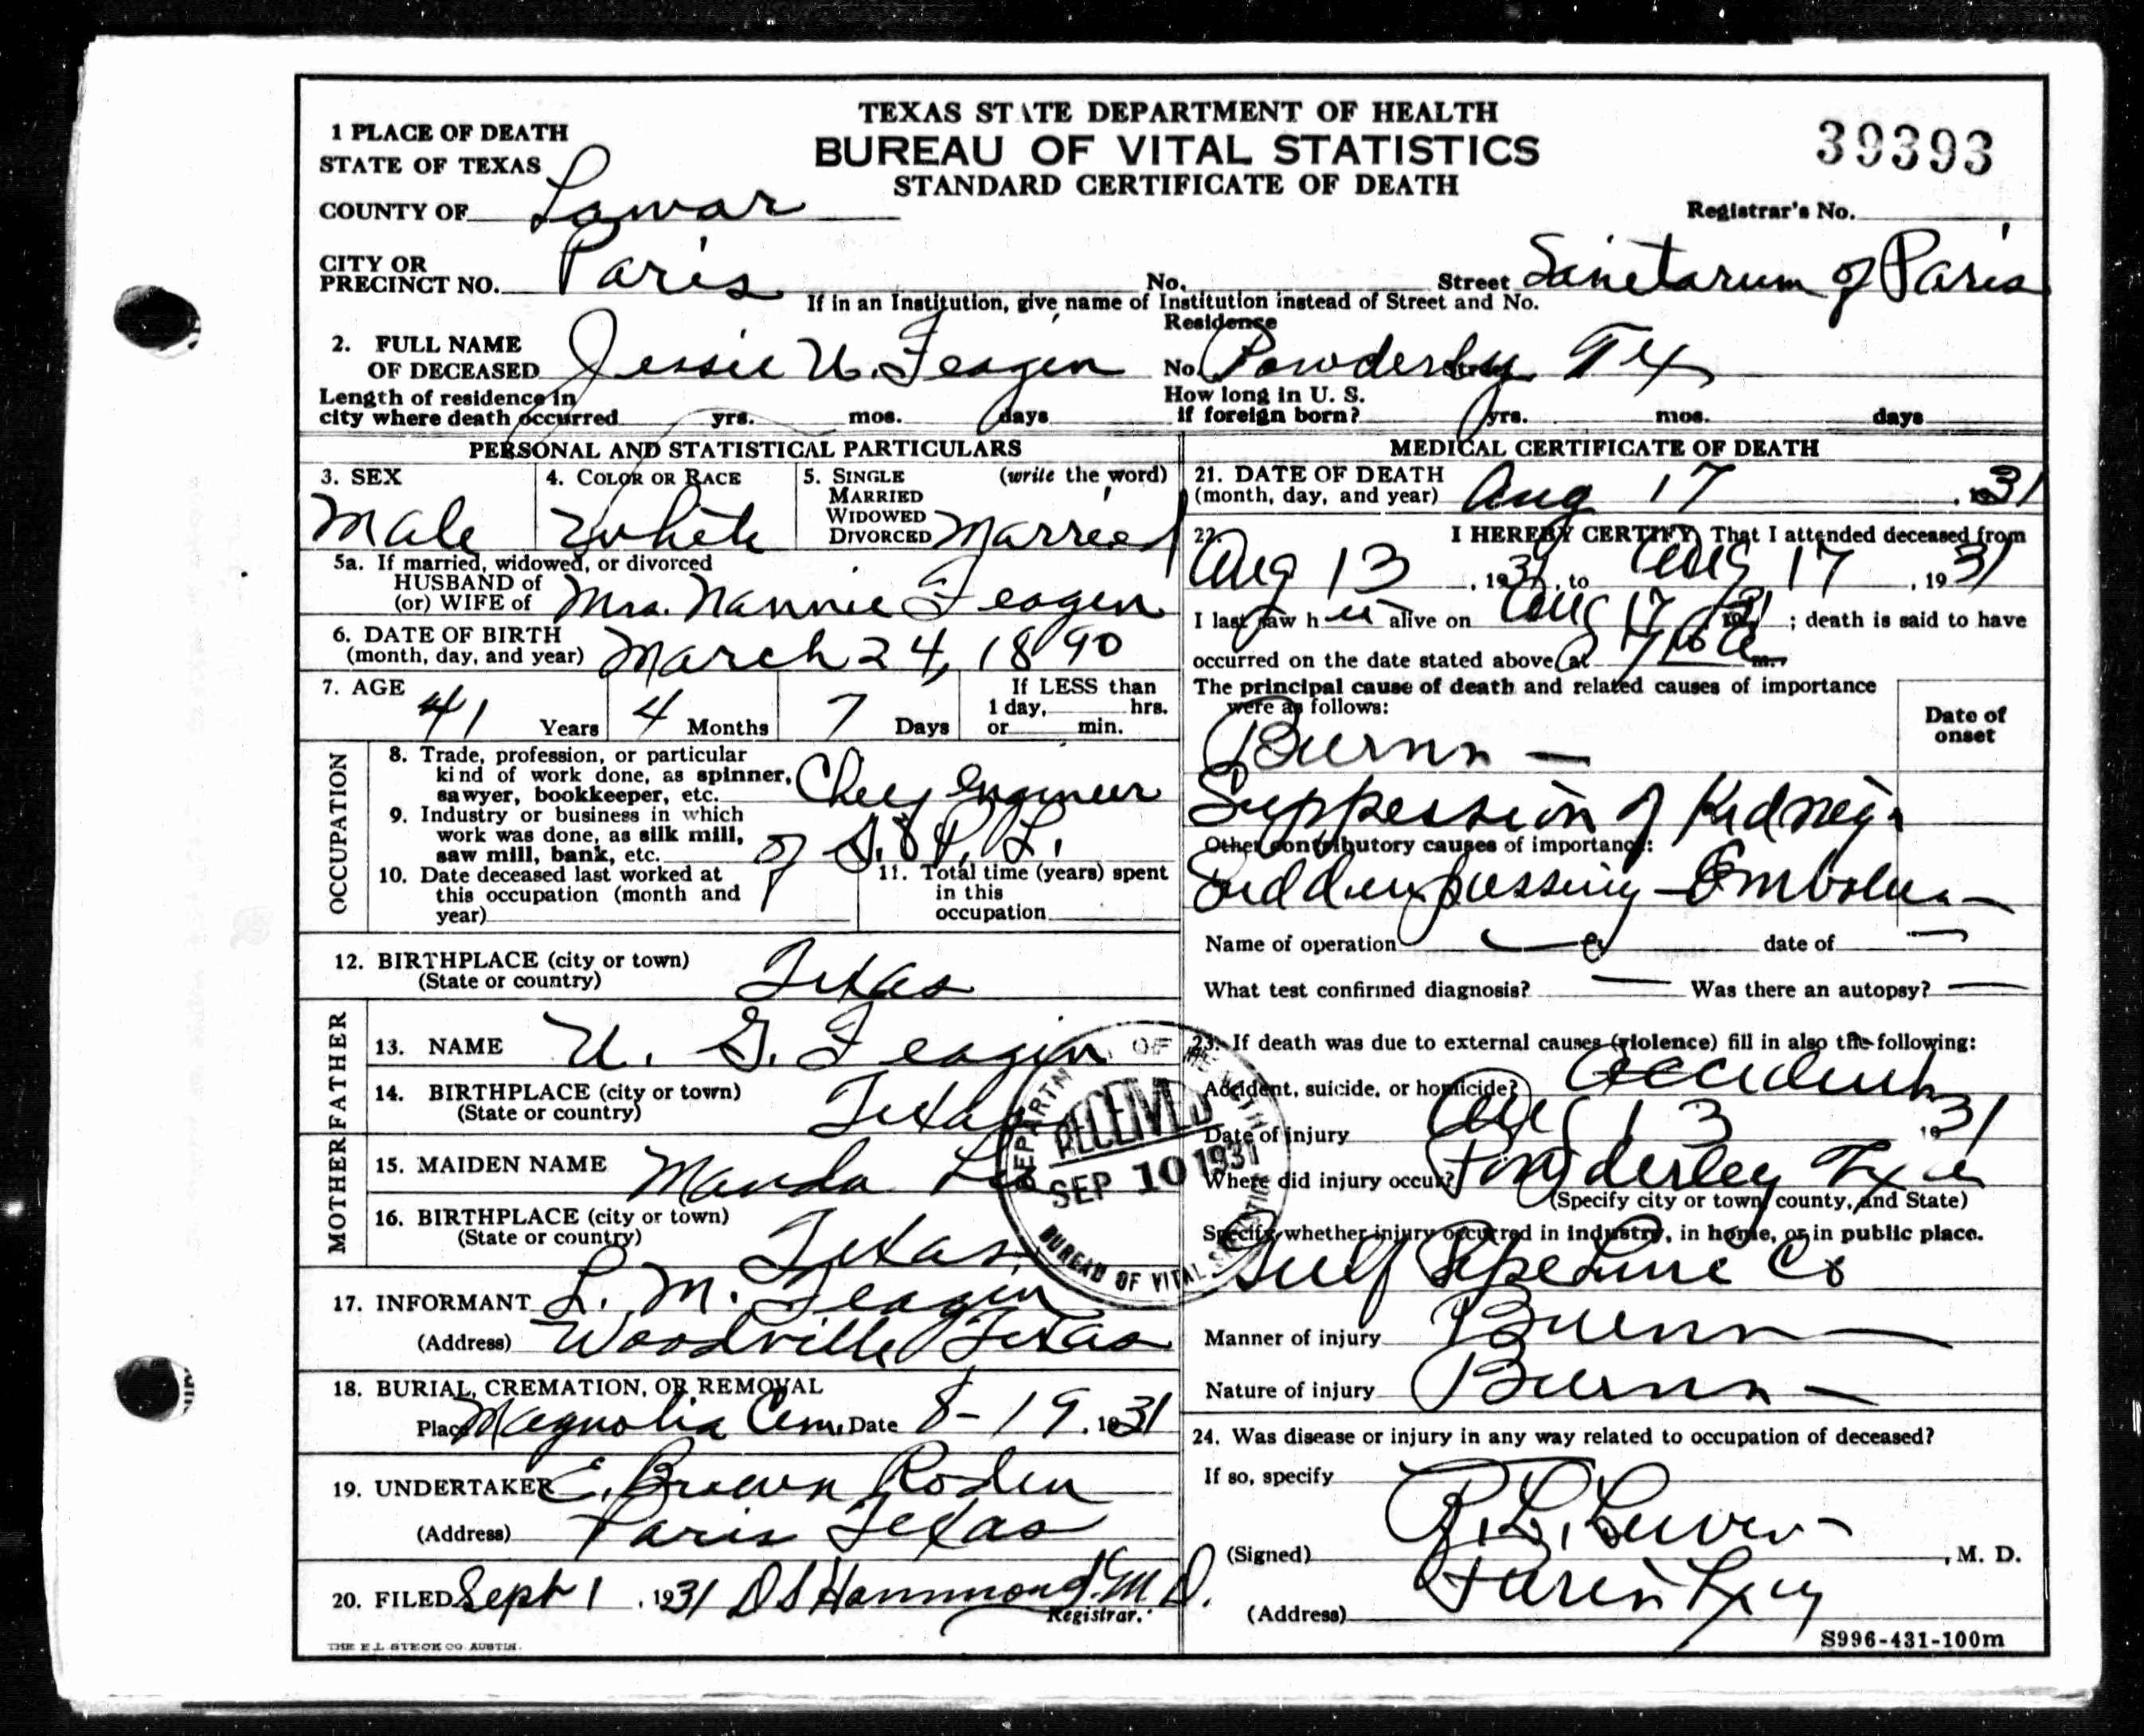 TEXAS STATE DEPARTMENT OF HEALTH
BUREAU OF VITAL STATISTICS
STANDARD CERTIFICATE OF DEATH
39393
Registrar's No.
1 PLACE OF DEATH
STATE OF TEXAS
COUNTY OF Lamar
CITY OR PRECINCT NO. Paris No. Street Sanitarum of Paris
If in an Institution, give name of Institution instead of Street and No.
2. FULL NAME OF DECEASED Jessie U. Feagin Residence No. Powderly Tex
Length of residence in city where death occurred yrs. mos. days
How long in U. S. if foreign born? yrs. mos. days
PERSONAL AND STATISTICAL PARTICULARS
3. SEX Male
4. COLOR OR RACE White
5. SINGLE MARRIED WIDOWED DIVORCED (write the word) Married
5a. If married, widowed, or divorced
HUSBAND of
(or) WIFE of Mrs. Nannie Feagin
6. DATE OF BIRTH
(month, day, and year) March 24, 1890
7. AGE 41 Years 4 Months 7 Days If LESS than 1 day, hrs. or min.
OCCUPATION
8. Trade, profession, or particular kind of work done, as spinner, sawyer, bookkeeper, etc. Engineer
9. Industry or business in which work was done, as silk mill, saw mill, bank, etc. of G. P. L.
10. Date deceased last worked at this occupation (month and year)
11. Total time (years) spent in this occupation
12. BIRTHPLACE (city or town)
(State or country) Texas
FATHER
13. NAME U. G. Feagin
14. BIRTHPLACE (city or town)
(State or country) Texas
MOTHER
15. MAIDEN NAME Manda
16. BIRTHPLACE (city or town)
(State or country) Texas
17. INFORMANT L. M. Feagin
(Address) Woodville Texas
18. BURIAL, CREMATION, OR REMOVAL
Place Magnolia Cem. Date 8-19, 1931
19. UNDERTAKER E. Brown Roden
(Address) Paris Texas
20. FILED Sept 1, 1931 D S Hammond M D.
Registrar.
THE E.L. STECK CO. AUSTIN.
MEDICAL CERTIFICATE OF DEATH
21. DATE OF DEATH
(month, day, and year) Aug 17, 31
22. I HEREBY CERTIFY, That I attended deceased from
Aug 13, 1931, to Aug 17, 1931
I last saw h alive on Aug 17 31; death is said to have
occurred on the date stated above at m.
The principal cause of death and related causes of importance
were as follows:
Date of onset
Burns —
Suppession of Kidneys
Other contributory causes of importance:
Sudden passing Embolus —
Name of operation date of —
What test confirmed diagnosis? — Was there an autopsy? —
23. If death was due to external causes (violence) fill in also the following:
Accident, suicide, or homicide? Accident
Date of injury Aug 13 1931
Where did injury occur? Powderley Texas
(Specify city or town, county, and State)
Specify whether injury occurred in industry, in home, or in public place.
Gulf Pipe Line Co
Manner of injury Burns —
Nature of injury Burns —
24. Was disease or injury in any way related to occupation of deceased?
If so, specify
(Signed) R. L. Lewis, M. D.
(Address) Paris Texas
S996-431-100m
DEPARTMENT OF HEALTH
RECEIVED
SEP 10 1931
BUREAU OF VITAL STATISTICS